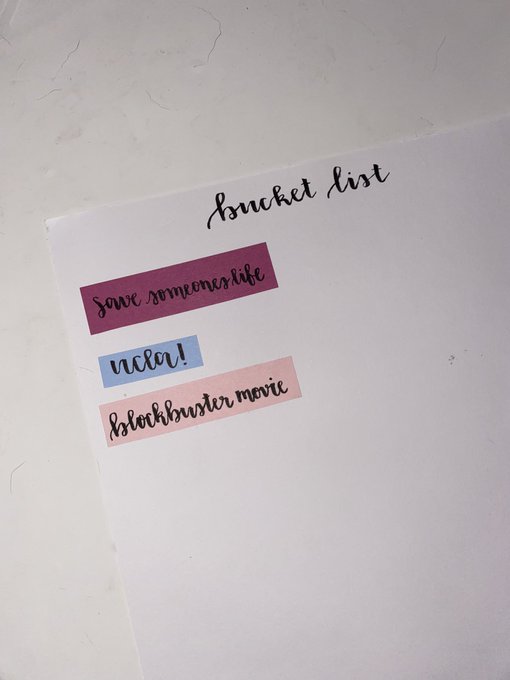 bucket list
save someones life
ucla!
blockbuster movie